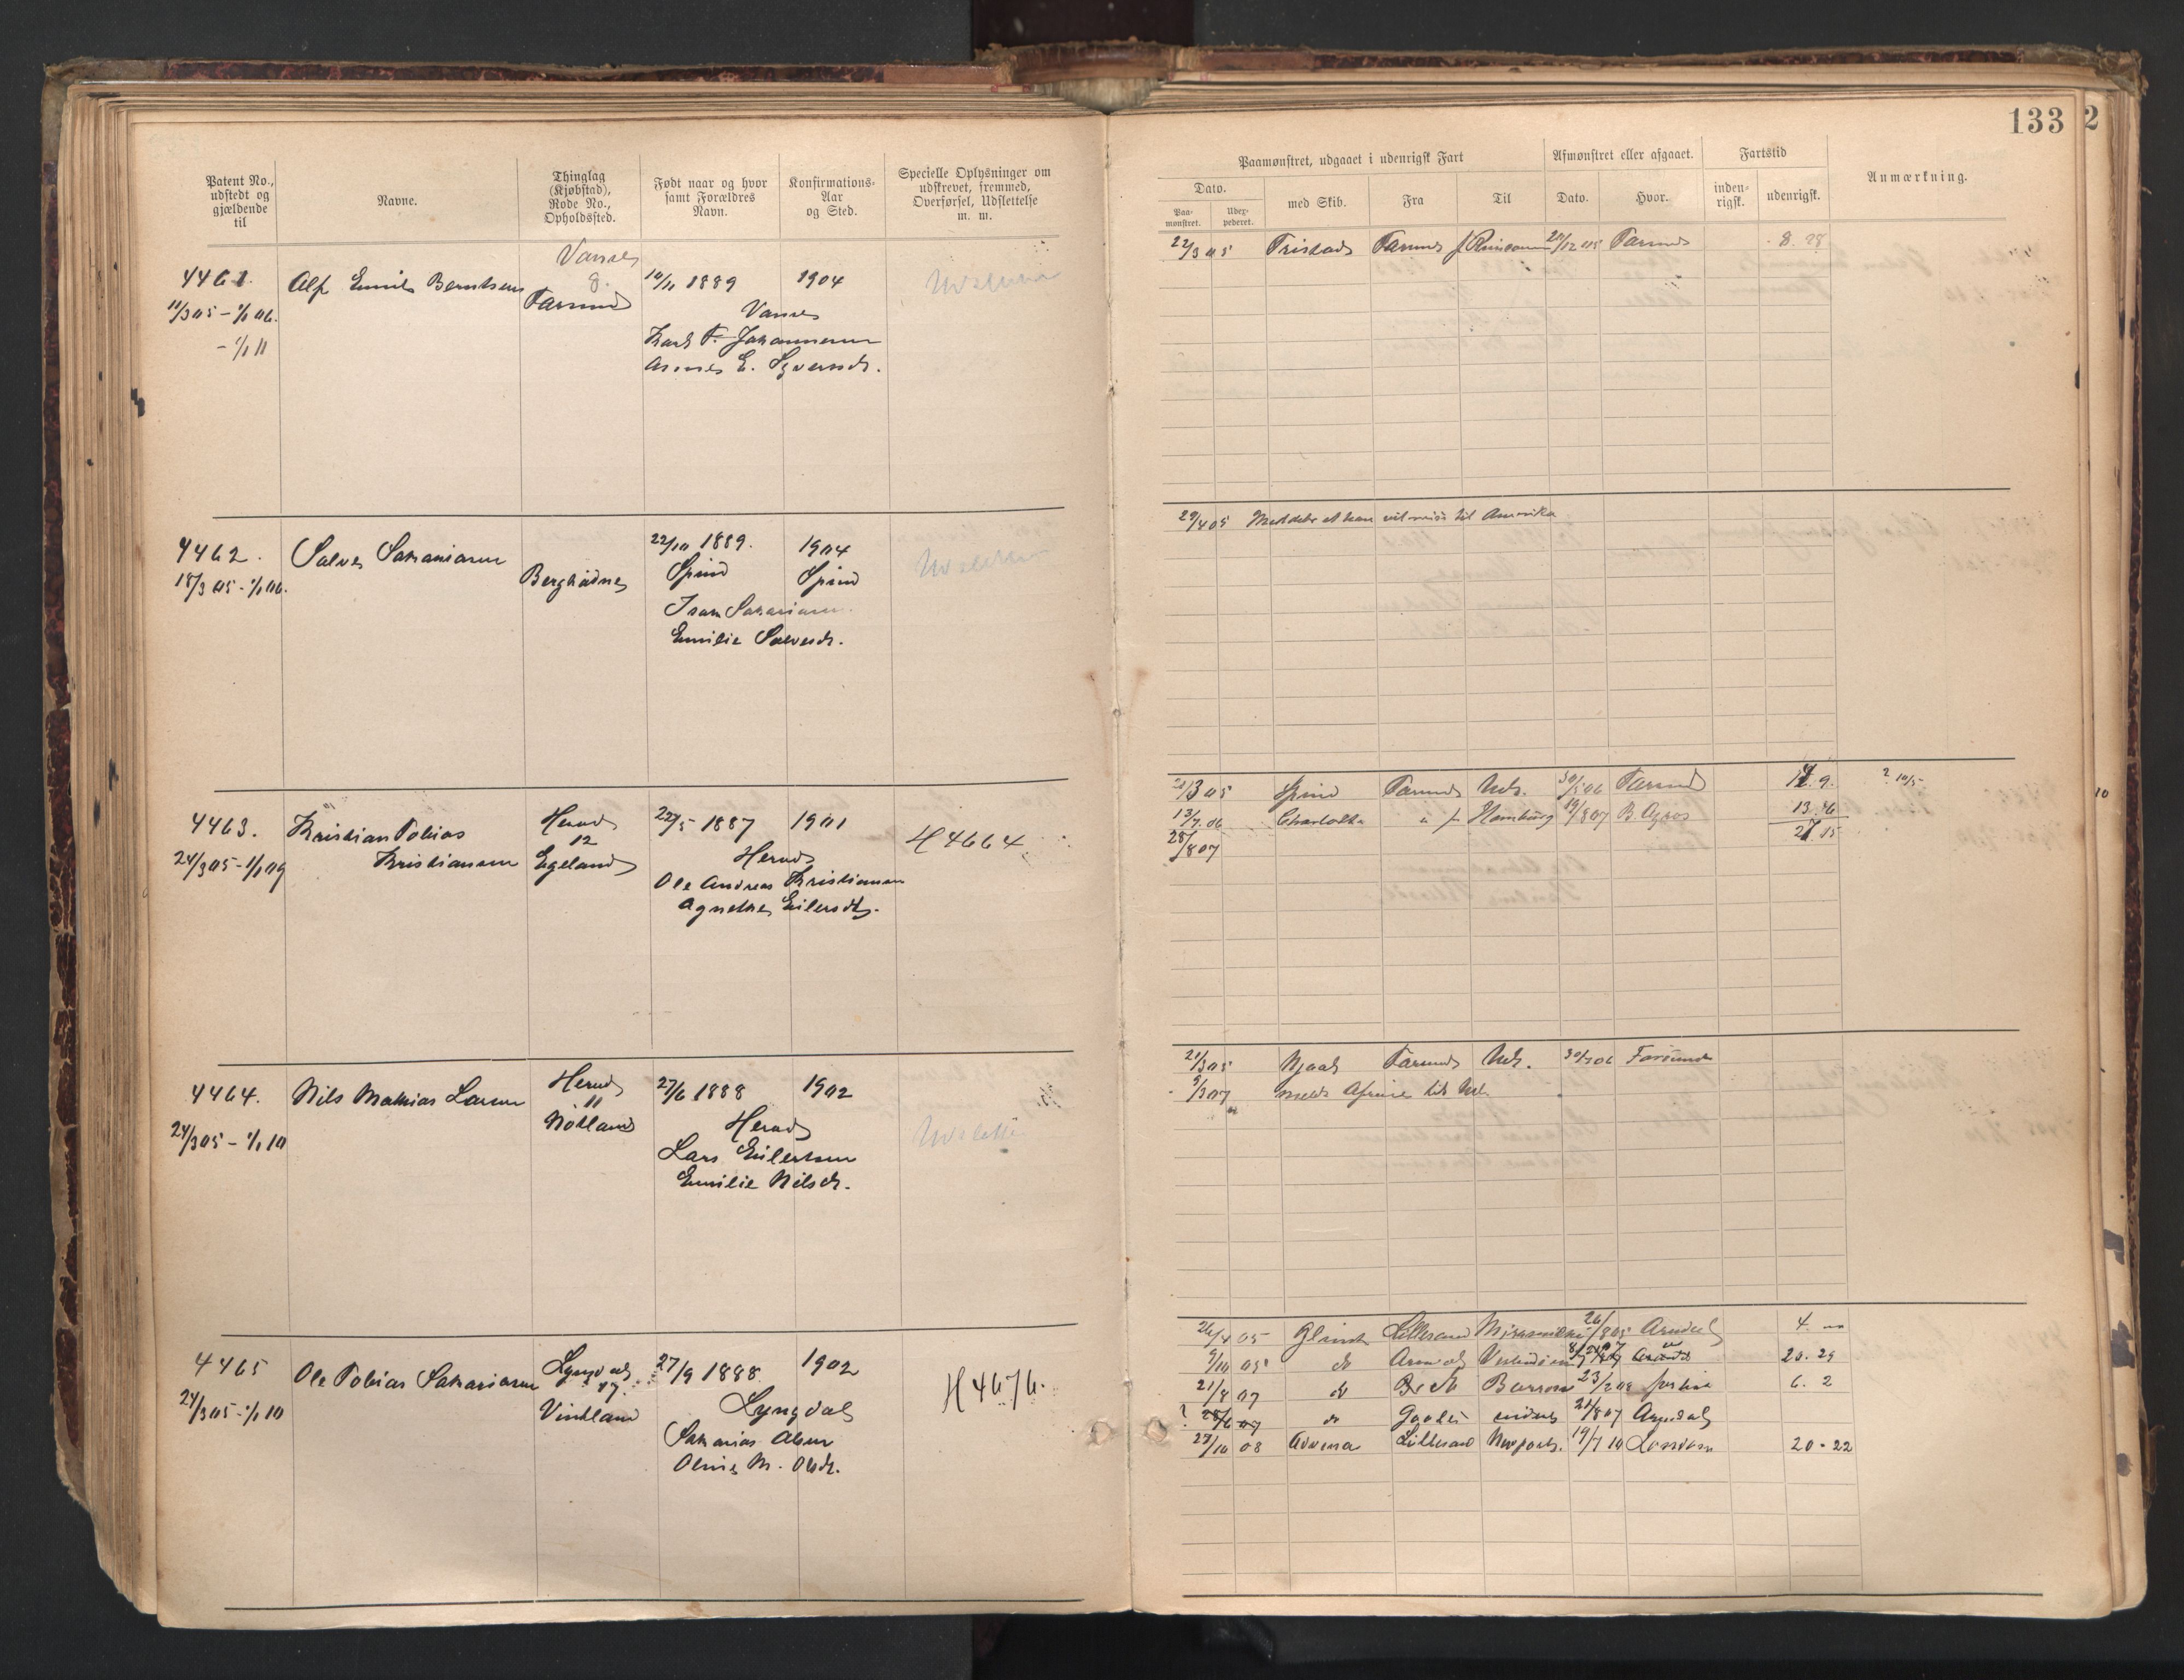 133
2
Patent No., udstedt og gjældende til
Navne.
Thinglag (Kjøbstad), Rode No., Opholdssted.
Født naar og hvor samt Forældres Navn.
Konfirmations-Aar og Sted.
Specielle Oplysninger om udskrevet, fremmed, Overførsel, Udslettelse m. m.
Paamønstret, udgaaet i udenrigsk Fart
Afmønstret eller afgaaet.
Fartstid
Anmærkning.
Dato.
Paa-mønstret.
Udex-pederet.
med Skib.
Fra
Til
Dato.
Hvor.
inden-rigsk.
udenrigsk.
4461. Alf Emil Berntsen Vanse 8. Farsund 10/11 1889 1904
11/3 05 - 1/1 06.
- 1/1 11
Vanse
Karl F. Johannesen
Agnes E. Syversdt.
22/3 05 Tristad Farsund 8. 28
4462. Salve Sakariasen Berghådne 22/10 1889. 1904
18/3 05 - 1/1 06.
Spind Spind
Isak Sakariasen
Emilie Salvesdt.
29/4 05 Melder at han vil reise til Amerika
4463. Kristian Tobias Kristiansen Herad 12 Egeland 22/5 1887 1901 H 4664
24/3 05 - 1/1 09
Herad
Ole Andreas Kristiansen
Agnethe Eilersdt.
21/3 05 Spind Farsund Udl. 30/5 06 Farsund 9.
13/7 06 Charlotte Hamburg 19/8 07 B. Ayres 13. 6
28/8 07 27 15
4464. Nils Mathias Larsen Herad 11 Nötland 27/6 1888 1902
24/3 05 - 1/1 10
Herad
Lars Eilertsen
Emilie Nilsdt.
21/3 05 Njaal Farsund Udl. 30/3 06 Farsund
5/3 07
4465 Ole Tobias Sakariasen Lyngdal 17. Vintland 27/9 1888 1902 H 4676.
24/3 05 - 1/1 10
Lyngdal
Sakarias Olsen
Olene M. Olsdt.
26/4 05 Glimt Lillesand 26/8 05 Arendal 4
9/10 05 do Arendal 20. 29
21/8 07 do 23/2 08 6. 2
28/6 07 do 21/8 07 Arendal
27/10 08 Lillesand Newport. 19/7 10 London 20 - 22